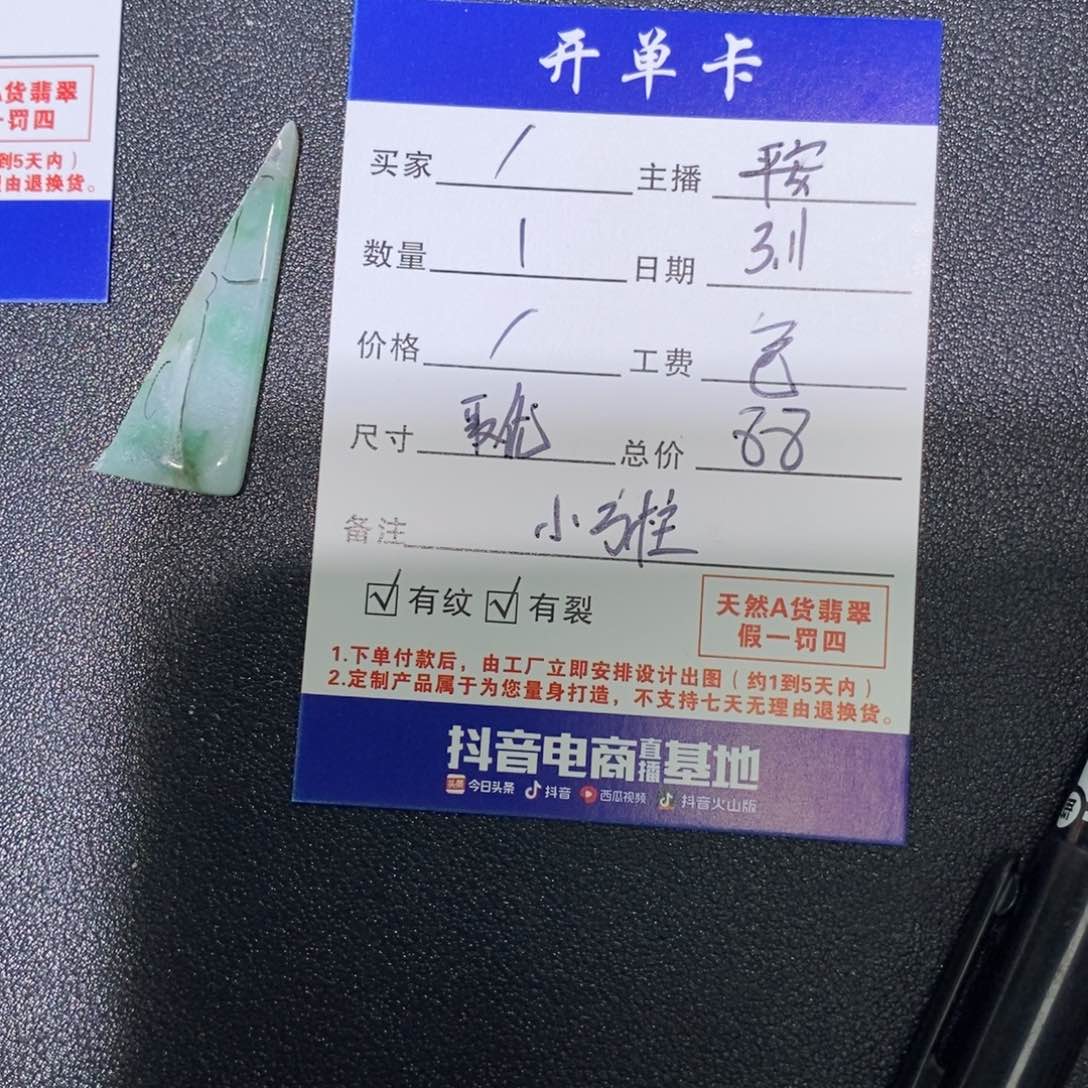 货翡翠
一罚四
到5天内）
由退换货。
开单卡
买家 / 主播 平安
数量 1 日期 3.11
价格 / 工费 包
尺寸 取优 总价 88
备注 小方柱
☑有纹 ☑有裂
天然A货翡翠
假一罚四
1.下单付款后，由工厂立即安排设计出图（约1到5天内）
2.定制产品属于为您量身打造，不支持七天无理由退换货。
抖音电商直播基地
头条 今日头条 抖音 西瓜视频 抖音火山版